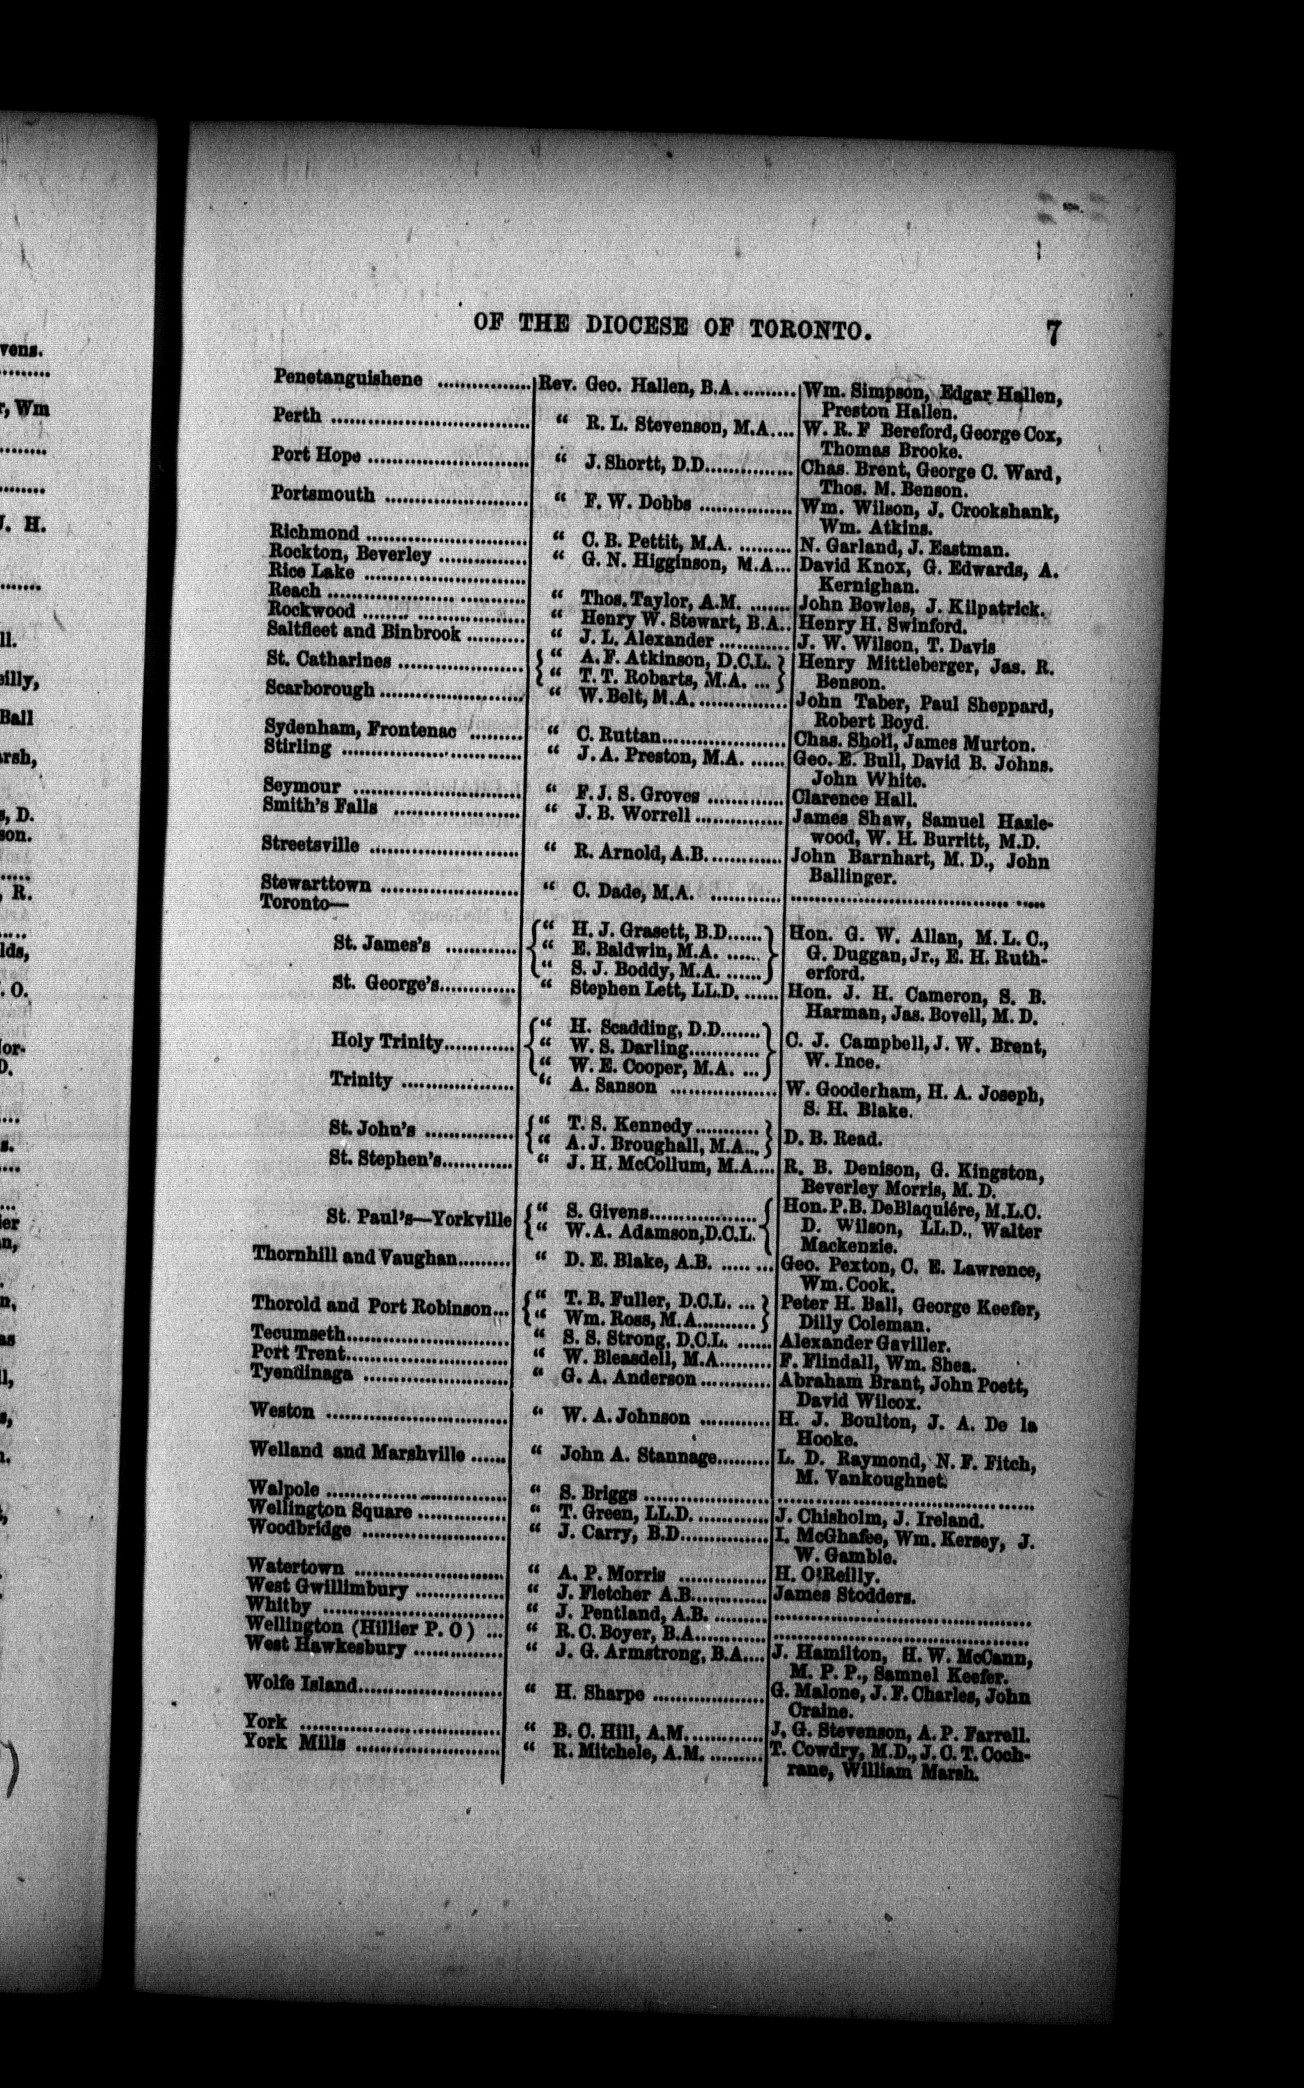 vens.
r, Wm
J. H.
ll.
eilly,
Ball
arsh,
s, D.
son.
, R.
lds,
. O.
Mor-
D.
s.
ier
an,
n,
as
ll,
s,
n.
OF THE DIOCESE OF TORONTO. 7
Penetanguishene ............... Rev. Geo. Hallen, B.A. ......... Wm. Simpson, Edgar Hallen,
Preston Hallen.
Perth .............................. “ R. L. Stevenson, M.A.... W. R. F Bereford, George Cox,
Thomas Brooke.
Port Hope ........................ “ J. Shortt, D.D............... Chas. Brent, George C. Ward,
Thos. M. Benson.
Portsmouth ..................... “ F. W. Dobbs ............... Wm. Wilson, J. Crookshank,
Wm. Atkins.
Richmond ........................ “ C. B. Pettit, M.A. ......... N. Garland, J. Eastman.
Rockton, Beverley ............. “ G. N. Higginson, M.A... David Knox, G. Edwards, A.
Rice Lake ........................ Kernighan.
Reach .............................. “ Thos. Taylor, A.M. ....... John Bowles, J. Kilpatrick.
Rockwood ....... ............... “ Henry W. Stewart, B.A.. Henry H. Swinford.
Saltfleet and Binbrook .......... “ J. L. Alexander ............ J. W. Wilson, T. Davis
St. Catharines .................... { “ A. F. Atkinson, D.C.L. } Henry Mittleberger, Jas. R.
{ “ T. T. Robarts, M.A. ... } Benson.
Scarborough ...................... “ W. Belt, M.A. ............... John Taber, Paul Sheppard,
Robert Boyd.
Sydenham, Frontenac ......... “ C. Ruttan..................... Chas. Sholl, James Murton.
Stirling ............................ “ J. A. Preston, M.A. ...... Geo. E. Bull, David B. Johns.
John White.
Seymour .......................... “ F. J. S. Groves ............. Clarence Hall.
Smith's Falls .................... “ J. B. Worrell ............... James Shaw, Samuel Hazle-
wood, W. H. Burritt, M.D.
Streetsville ....................... “ R. Arnold, A.B............. John Barnhart, M. D., John
Ballinger.
Stewarttown ..................... “ C. Dade, M.A. ............ ......................................
Toronto—
St. James's ............ { “ H. J. Grasett, B.D...... } Hon. G. W. Allan, M. L. C.,
{ “ E. Baldwin, M.A. ...... } G. Duggan, Jr., E. H. Ruth-
{ “ S. J. Boddy, M.A. ...... } erford.
St. George's............. “ Stephen Lett, LL.D. ...... Hon. J. H. Cameron, S. B.
Harman, Jas. Bovell, M. D.
Holy Trinity............ { “ H. Scadding, D.D....... }
{ “ W. S. Darling............ } C. J. Campbell, J. W. Brent,
{ “ W. E. Cooper, M.A. ... } W. Ince.
Trinity .................... “ A. Sanson .................. W. Gooderham, H. A. Joseph,
S. H. Blake.
St. John's ............... { “ T. S. Kennedy........... } D. B. Read.
{ “ A. J. Broughall, M.A... }
St. Stephen's............ “ J. H. McCollum, M.A.... R. B. Denison, G. Kingston,
Beverley Morris, M. D.
St. Paul's—Yorkville { “ S. Givens.................. { Hon. P. B. DeBlaquiére, M.L.C.
{ “ W. A. Adamson, D.C.L. { D. Wilson, LL.D., Walter
Mackenzie.
Thornhill and Vaughan......... “ D. E. Blake, A.B. ...... ... Geo. Pexton, C. E. Lawrence,
Wm. Cook.
Thorold and Port Robinson... { “ T. B. Fuller, D.C.L. ... } Peter H. Ball, George Keefer,
{ “ Wm. Ross, M.A.......... } Dilly Coleman.
Tecumseth......................... “ S. S. Strong, D.C.L. ...... Alexander Gaviller.
Port Trent......................... “ W. Bleasdell, M.A......... F. Flindall, Wm. Shea.
Tyendinaga ...................... “ G. A. Anderson ............ Abraham Brant, John Poett,
David Wilcox.
Weston ............................ “ W. A. Johnson ............ H. J. Boulton, J. A. De la
Hooke.
Welland and Marshville ...... “ John A. Stannage......... L. D. Raymond, N. F. Fitch,
M. Vankoughnet.
Walpole ........................... “ S. Briggs .................... ......................................
Wellington Square .............. “ T. Green, LL.D. ............ J. Chisholm, J. Ireland.
Woodbridge ...................... “ J. Carry, B.D............... I. McGhafee, Wm. Kersey, J.
W. Gamble.
Watertown ....................... “ A. P. Morris ............... H. O'Reilly.
West Gwillimbury .............. “ J. Fletcher A.B............. James Stodders.
Whitby ............................ “ J. Pentland, A.B. ......... ......................................
Wellington (Hillier P. O) ... “ R. C. Boyer, B.A............ ......................................
West Hawkesbury .............. “ J. G. Armstrong, B.A.... J. Hamilton, H. W. McCann,
M. P. P., Samnel Keefer.
Wolfe Island...................... “ H. Sharpe ................... G. Malone, J. F. Charles, John
Craine.
York ............................... “ B. C. Hill, A.M............. J. G. Stevenson, A. P. Farrell.
York Mills ....................... “ R. Mitchele, A.M. ......... T. Cowdry, M.D., J. C. T. Coch-
rane, William Marsh.